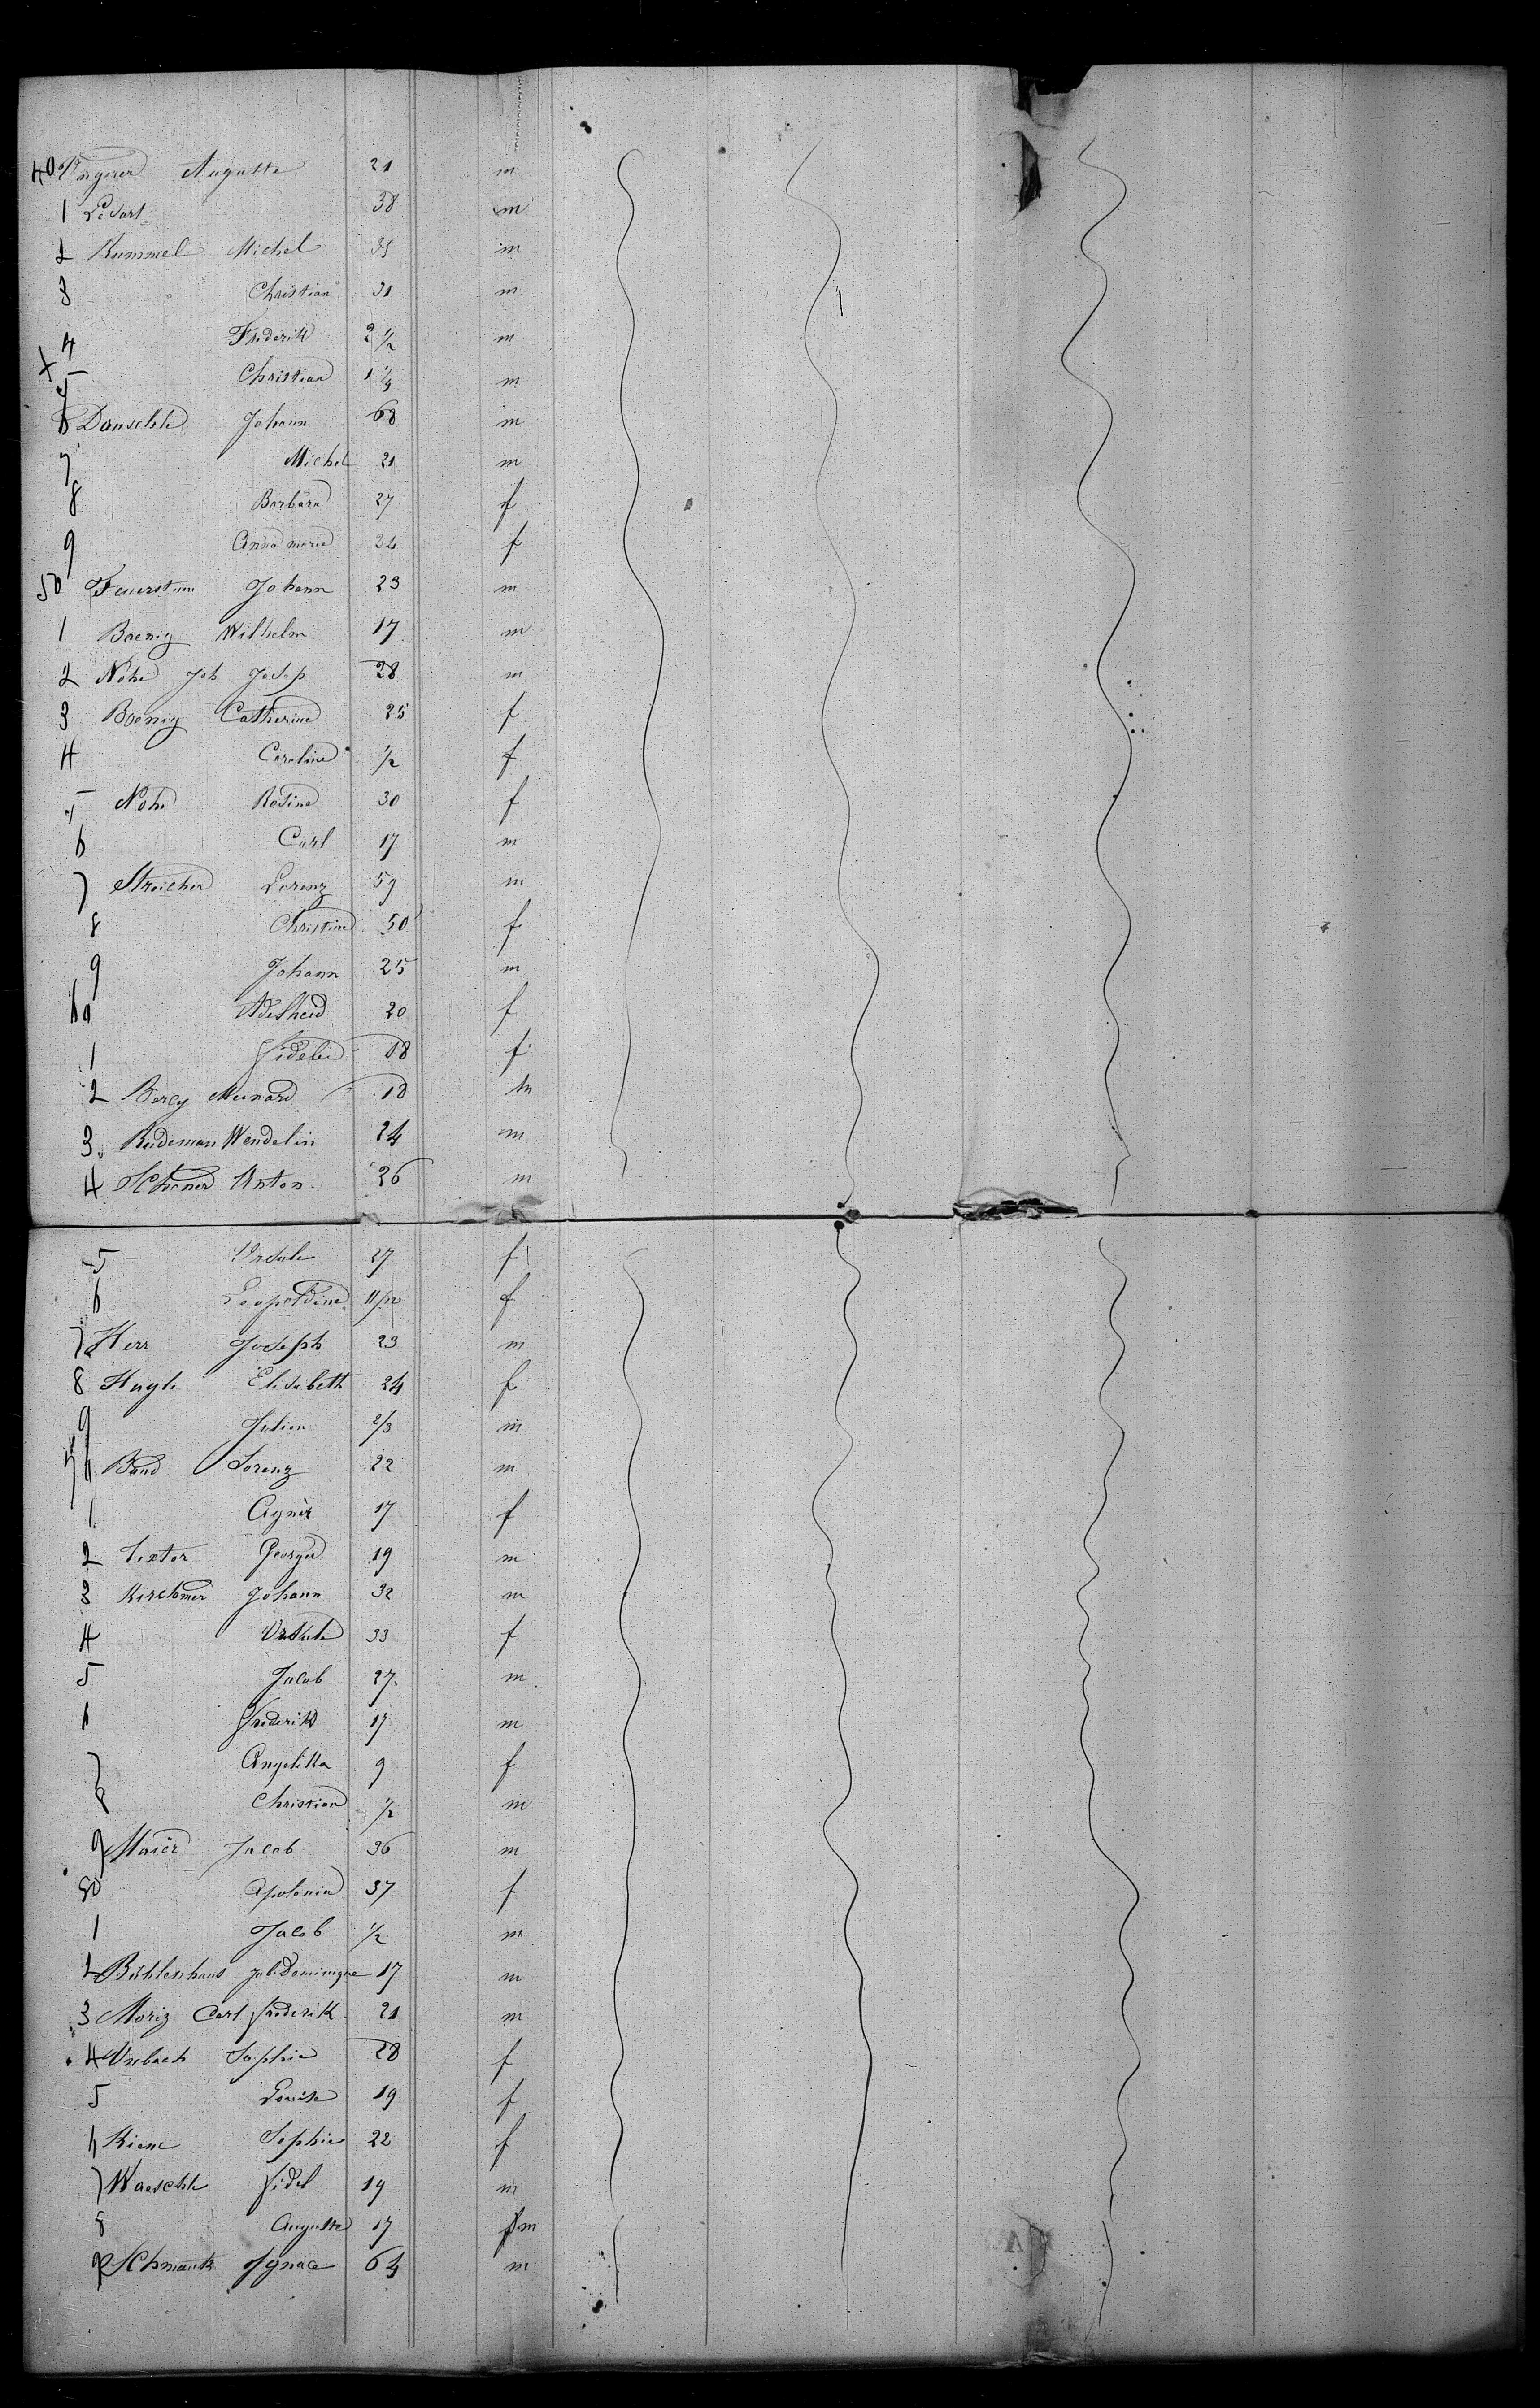 40 Auguste 21 m
1 Ledart 38 m
2 Rummel Michel 35 m
3 Christian 31 m
4 Frederik 2 1/2 m
5 Christian m
6 Johann 68 m
7 Michel 21 m
8 Barbara 27 f
9 Anna marie 24 f
50 Feuerstein Johann 23 m
1 Baenig Wilhelm 17 m
2 Nohe Joh Josep 28 m
3 Boenig Catherine 25 f
4 Caroline 1/2 f
5 Nohe Rosine 30 f
6 Carl 17 m
7 Streicher Lorenz 59 m
8 Christine 50 f
9 Johann 25 m
60 Adelheid 20 f
1 Fidelie 18 f
2 Meinard 18 m
3 Rudeman Wendelin 24 m
4 Anton 26 m
5 Ursule 27 f
6 Leopoldine 11/12 f
7 Herr Joseph 23 m
8 Hagle Elisabeth 24 f
9 Julien 2/3 m
70 Band Lorenz 22 m
1 Agnès 17 f
2 Textor George 19 m
3 Kirchmer Johann 32 m
4 Ursule 33 f
5 Jacob 27 m
6 Frederik 17 m
7 Angelika 9 f
8 Christian 1/2 m
9 Maier Jacob 36 m
80 Apolonia 37 f
1 Jacob 1/2 m
2 Bühlenhaus Dominique 17 m
3 Moriz Carl Frederik 21 m
4 Sophie 28 f
5 Louise 19 f
6 Kiene Sophie 22 f
7 Waeschle Fidel 19 m
8 Auguste 17 m
9 Schmauk Ignace 64 m